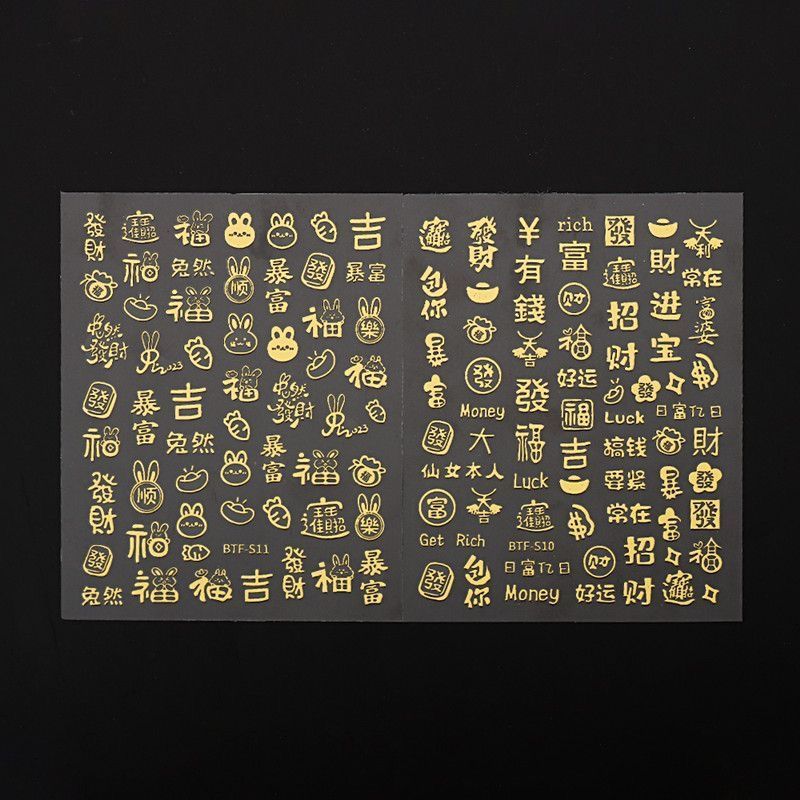 發財
招財進寶
福
吉
福
兔然
順
暴富
發
暴富
福
福
樂
兔然發財
2023
發
暴富
吉
福
福
兔然發財
2023
福
兔然
暴富
發財
顺
福
招財進寶
樂
福
BTF-S11
發
發財
福
暴富
兔然
福
福
吉
招財進寶
發財
¥
rich
發
大利
包你
有錢
富
招財進寶
財
常在
暴富
财
招财
进宝
富婆
發
大吉
福
Money
發
好运
Luck
發
$
日富亿日
發
大
福
福
搞钱
財
仙女本人
Luck
吉
要紧
暴富
發
富
大吉
招財進寶
$
常在
發
Get Rich
BTF-S10
财
招财
福
發
包你
日富亿日
Money
好运
招財進寶